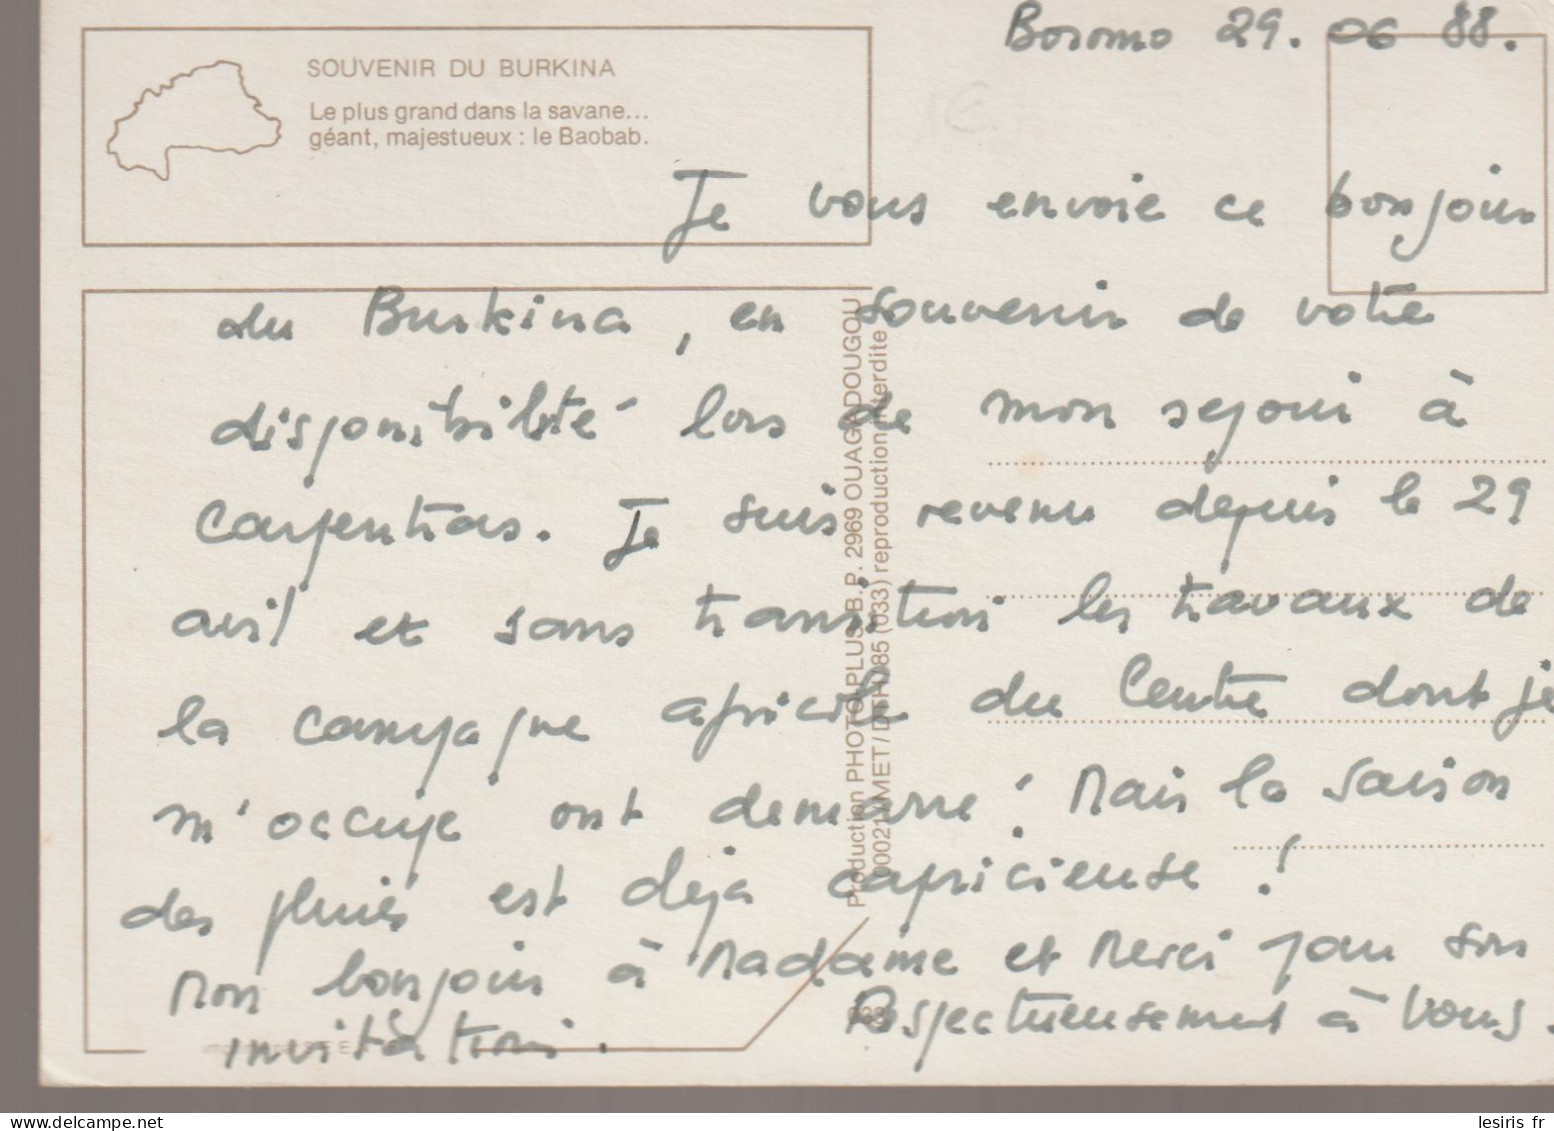 Boromo 29.06 88.
SOUVENIR DU BURKINA
Le plus grand dans la savane...
géant, majestueux : le Baobab.
1€
Je vous envoie ce bonjour
du Burkina, en souvenir de votre
disponibilité lors de mon sejour à
Carpentras. Je suis revenu depuis le 29
avril et sans transition les travaux de
la campagne agricole du Centre dont je
m'occupe ont demarré. Mais la saison
des pluies est deja capricieuse !
Mon bonjour à Madame et Merci pour son
invitation. Respectueusement à Vous.
Production PHOTOPLUS B.P. 2969 OUAGADOUGOU
reproduction interdite
lesiris fr